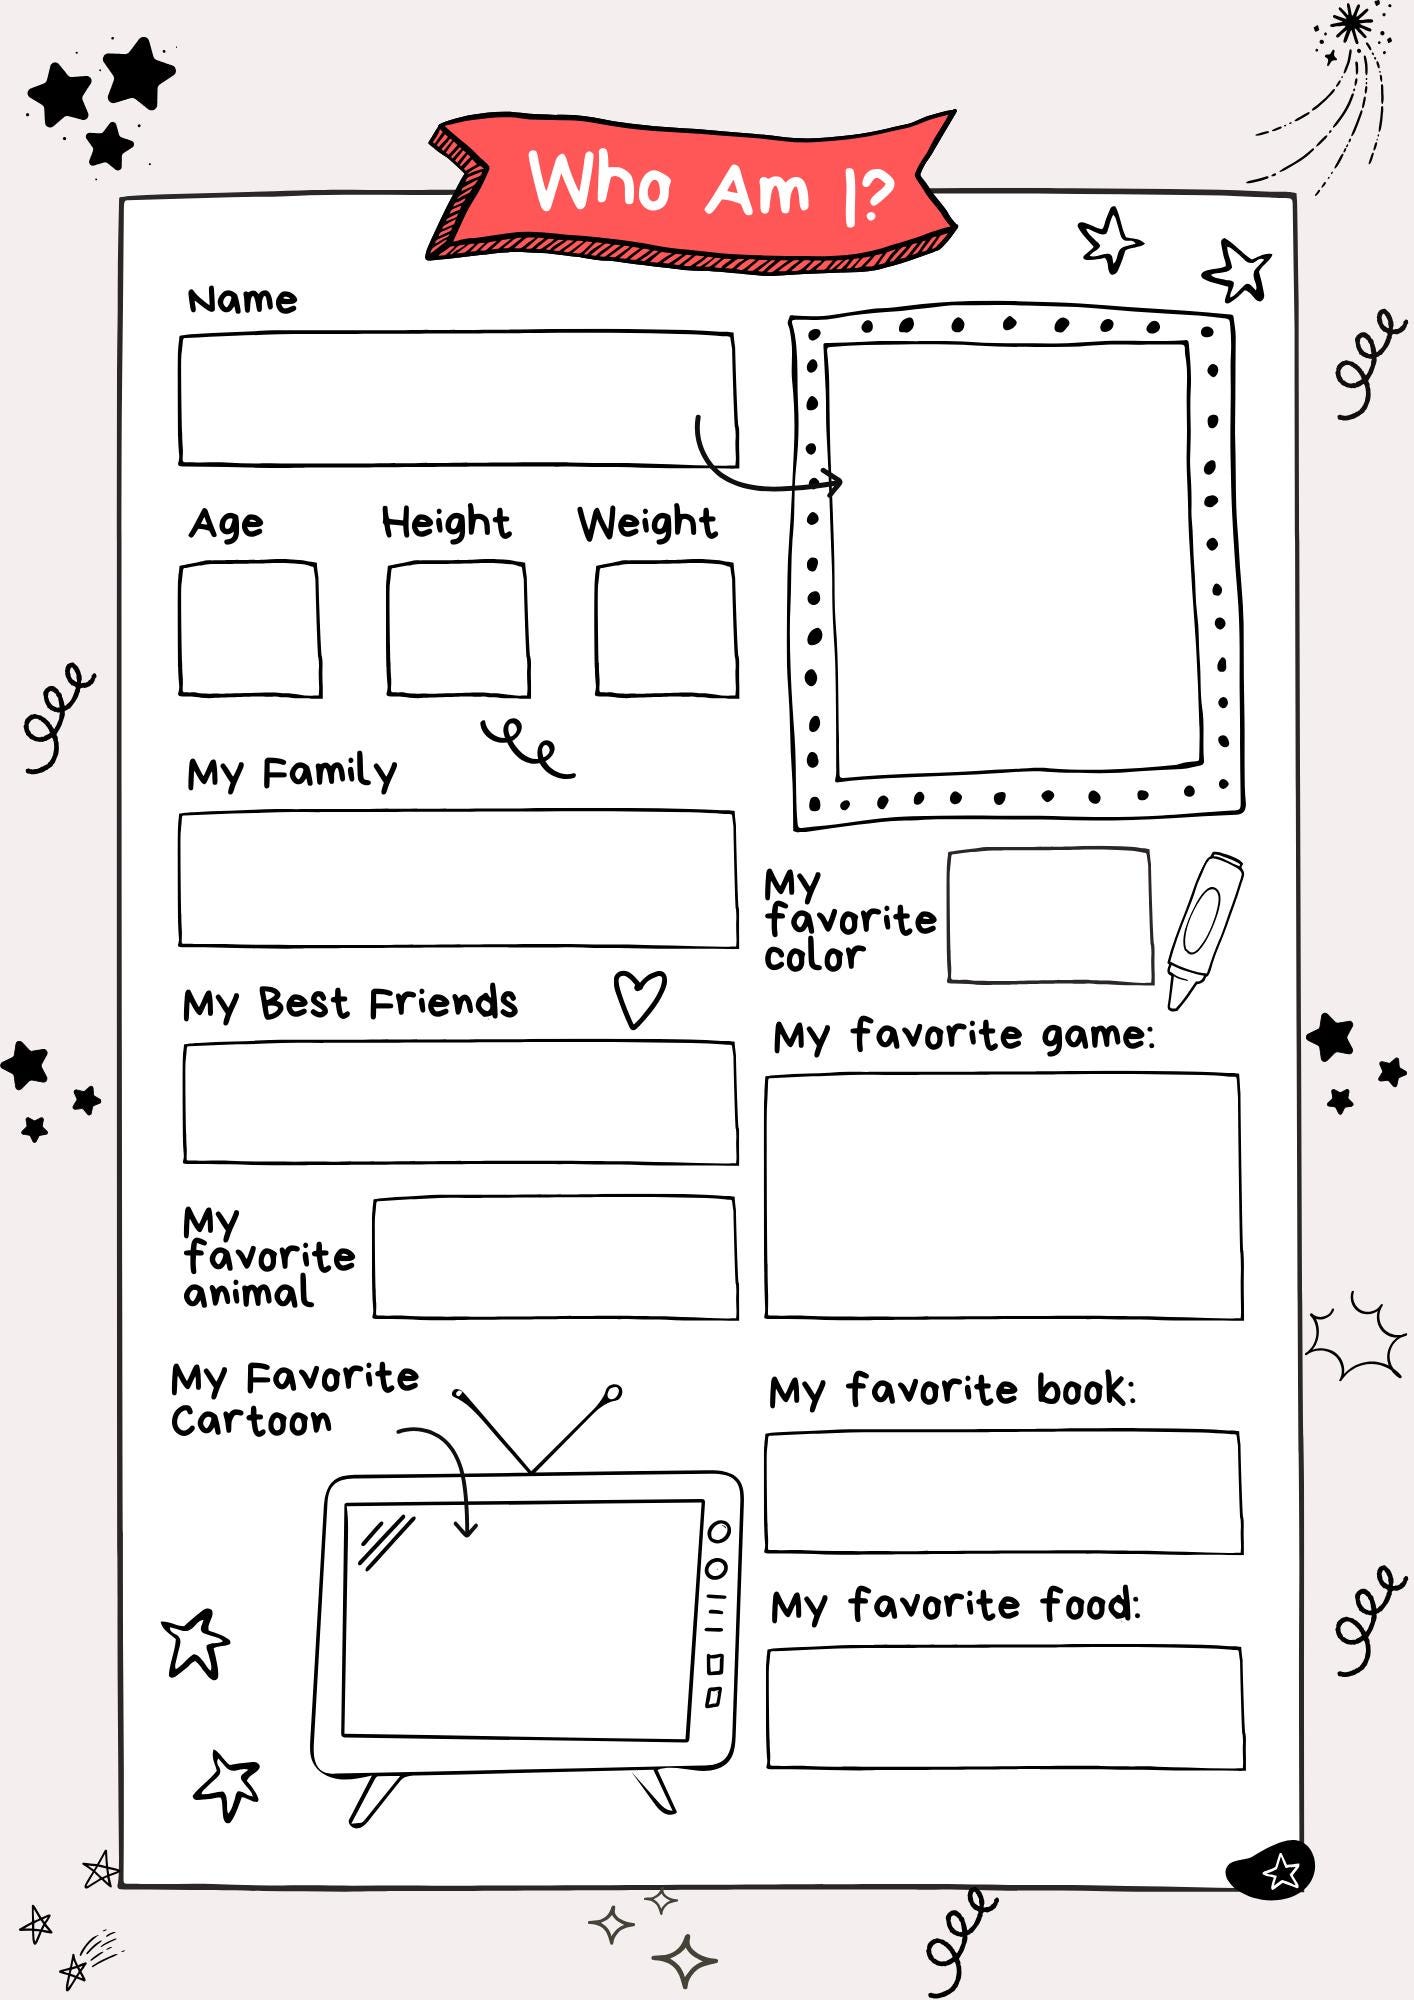 Who Am I?
Name
Age
Height
Weight
My Family
My Best Friends
My
favorite
animal
My Favorite
Cartoon
My
favorite
color
My favorite game:
My favorite book:
My favorite food: